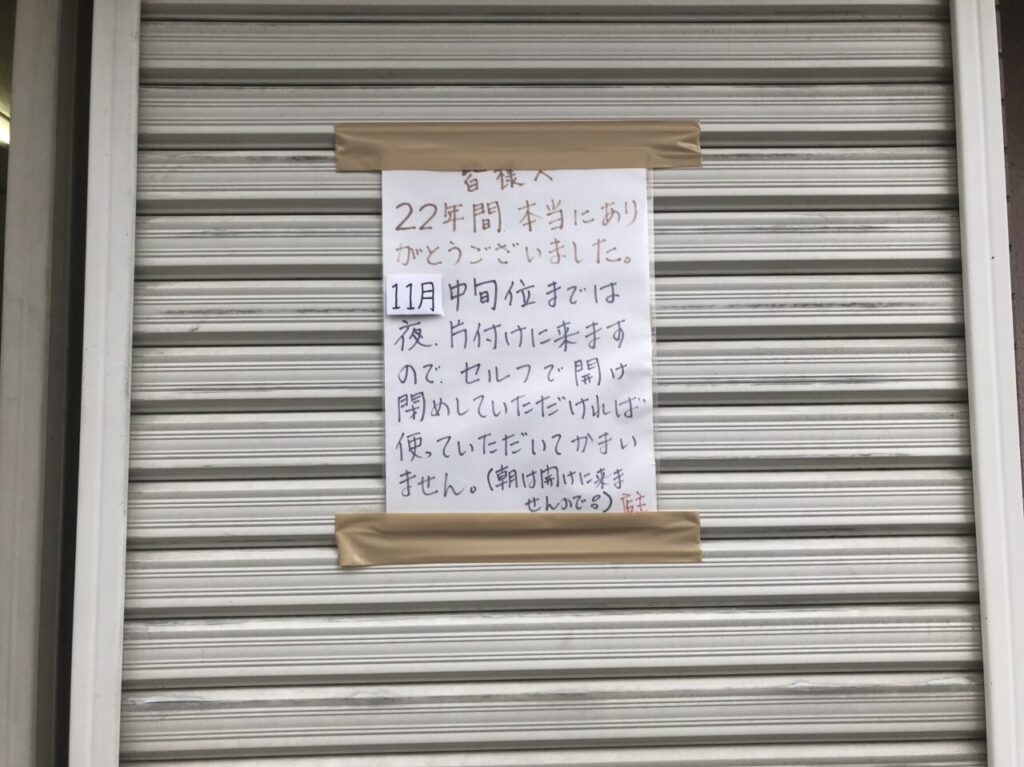 皆様へ
22年間 本当にあり
がとうございました。
11月中旬位までは
夜、片付けに来ます
ので、セルフで開け
閉めしていただければ
使っていただいてかまい
ません。(朝は開けに来ま
せんので。) 店主